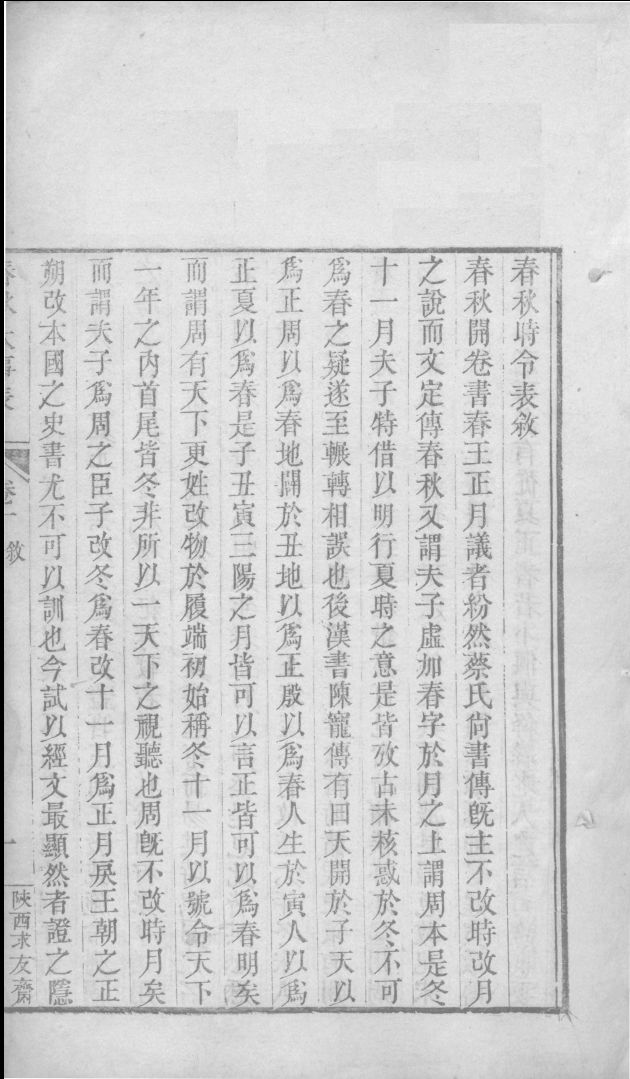 春秋時令表敘
春秋開卷書春王正月議者紛然蔡氏尙書傳旣主不改時改月
之說而文定傳春秋又謂夫子虛加春字於月之上謂周本是冬
十一月夫子特借以明行夏時之意是皆攷古未核惑於冬不可
爲春之疑遂至輾轉相誤也後漢書陳寵傳有曰天開於子天以
爲正周以爲春地闢於丑地以爲正殷以爲春人生於寅人以爲
正夏以爲春是子丑寅三陽之月皆可以言正皆可以爲春明矣
而謂周有天下更姓改物於履端初始稱冬十一月以號令天下
一年之內首尾皆冬非所以一天下之視聽也周旣不改時月矣
而謂夫子爲周之臣子改冬爲春改十一月爲正月戾王朝之正
朔改本國之史書尤不可以訓也今試以經文最顯然者證之隱
春秋大事表 卷一 敘 一 陝西求友齋